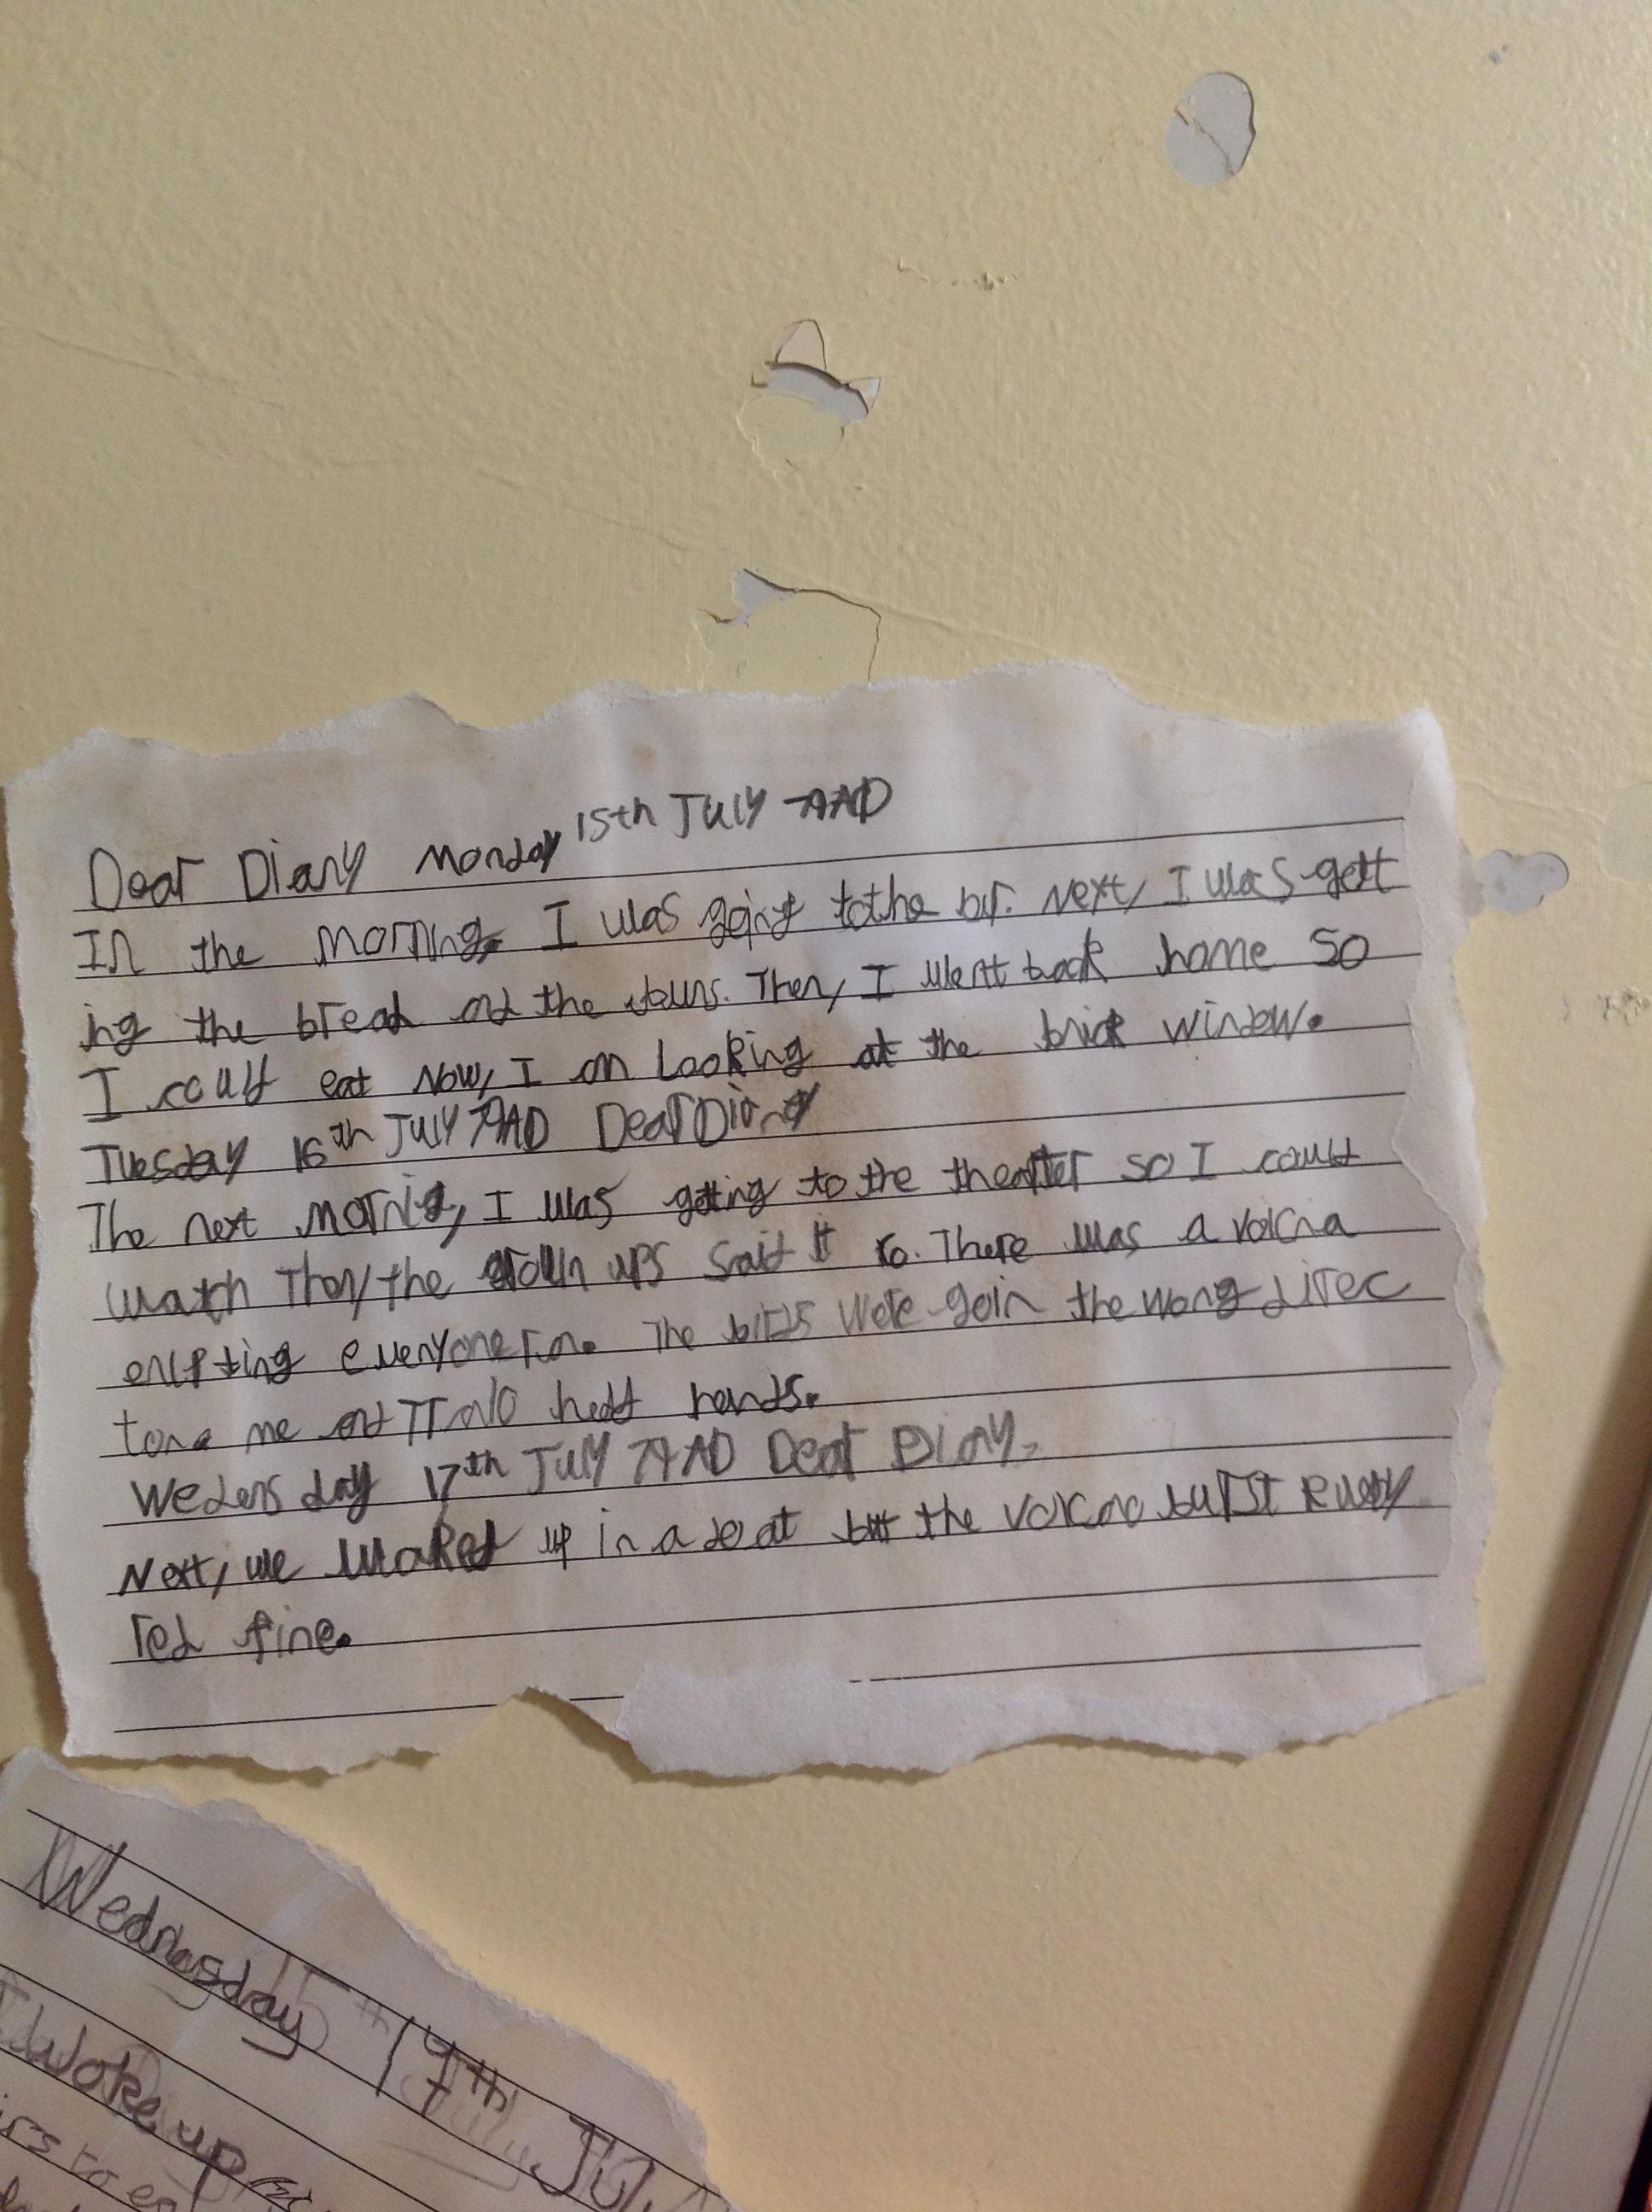 Dear Diary Monday 15th July 79AD
In the morning, I was going to the by. Next, I was gett
ing the bread and the Then, I went back home so
I could eat Now, I am Looking at the brick window.
Tuesday 16th July 79AD Dear Diary
The next mornig, I was getting to the theatter so I could
watch Then, the grown ups said it There was a volcna
erupting everyone ran. The birds were goin the wong direc
tone me and held hands.
Wedensday 17th July 79AD Dear Diary,
Next, we waked up in a boat but the volcno burst Every
red fine.
Wednesday 17th
I Woke up
to